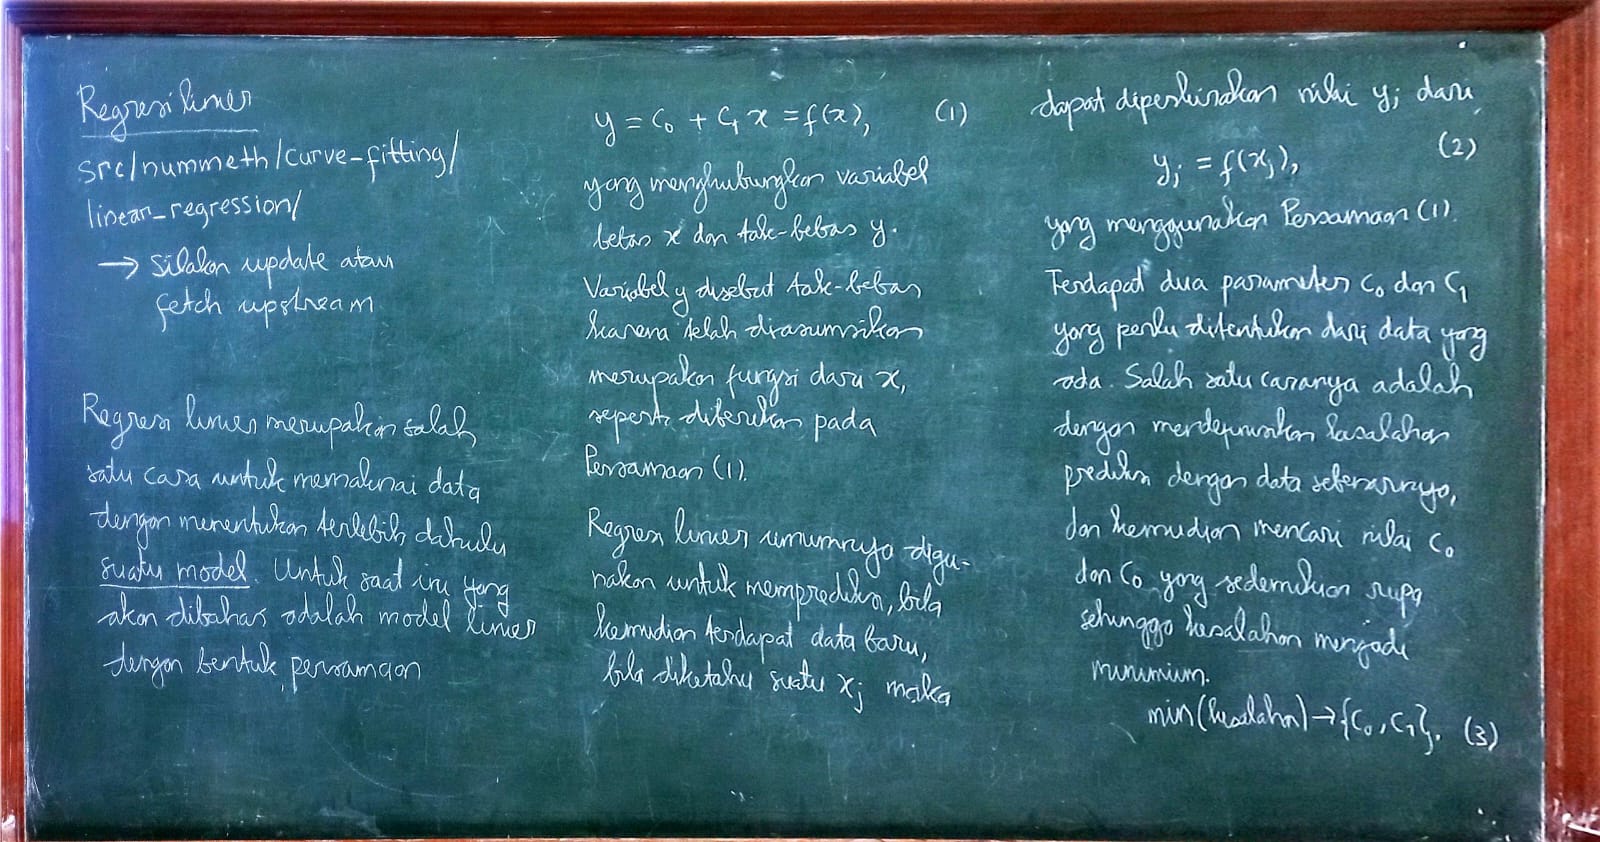 Regresi linier
src/nummeth/curve-fitting/
linear_regression/
→ Silakan update atau
fetch upstream
Regresi linier merupakan salah
satu cara untuk memaknai data
dengan menentukan terlebih dahulu
suatu model. Untuk saat ini yang
akan dibahas adalah model linier
dengan bentuk persamaan
y = c₀ + c₁ x = f(x), (1)
yang menghubungkan variabel
bebas x dan tak-bebas y.
Variabel y disebut tak-bebas
karena telah diasumsikan
merupakan fungsi dari x,
seperti diberikan pada
Persamaan (1).
Regresi linier umumnya digu-
nakan untuk memprediksi, bila
kemudian terdapat data baru,
bila diketahui suatu xⱼ maka
dapat diperkirakan nilai yⱼ dari
yⱼ = f(xⱼ), (2)
yang menggunakan Persamaan (1).
Terdapat dua parameter c₀ dan c₁
yang perlu ditentukan dari data yang
ada. Salah satu caranya adalah
dengan mendefinisikan kesalahan
prediksi dengan data sebenarnya,
dan kemudian mencari nilai c₀
dan c₀ yang sedemikian rupa
sehingga kesalahan menjadi
minimium.
min(kesalahan) → {c₀, c₁}. (3)